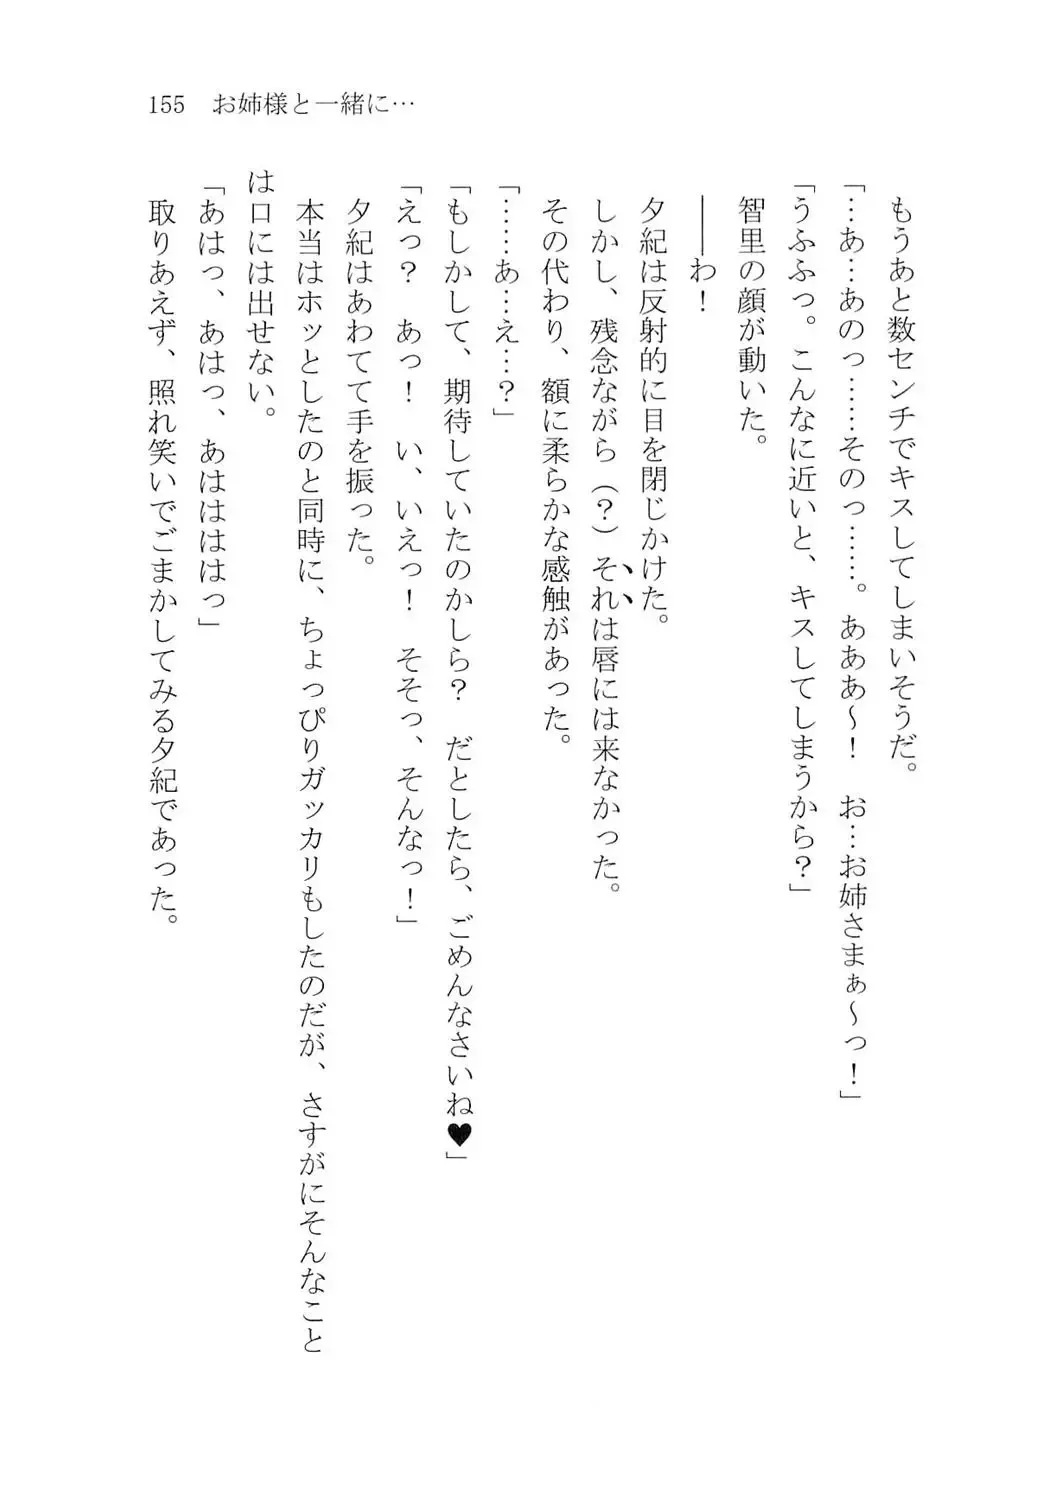 155 お姉様と一緒に…
もうあと数センチでキスしてしまいそうだ。
「…あ…あのっ……そのっ……。あああ～！　お…お姉さまぁ～っ！」
「うふふっ。こんなに近いと、キスしてしまうから？」
智里の顔が動いた。
――わ！
夕紀は反射的に目を閉じかけた。
しかし、残念ながら（？）それは唇には来なかった。
その代わり、額に柔らかな感触があった。
「……あ…え…？」
「もしかして、期待していたのかしら？　だとしたら、ごめんなさいね♥」
「えっ？　あっ！　い、いえっ！　そそっ、そんなっ！」
夕紀はあわてて手を振った。
本当はホッとしたのと同時に、ちょっぴりガッカリもしたのだが、さすがにそんなこと
は口には出せない。
「あはっ、あはっ、あはははっ」
取りあえず、照れ笑いでごまかしてみる夕紀であった。